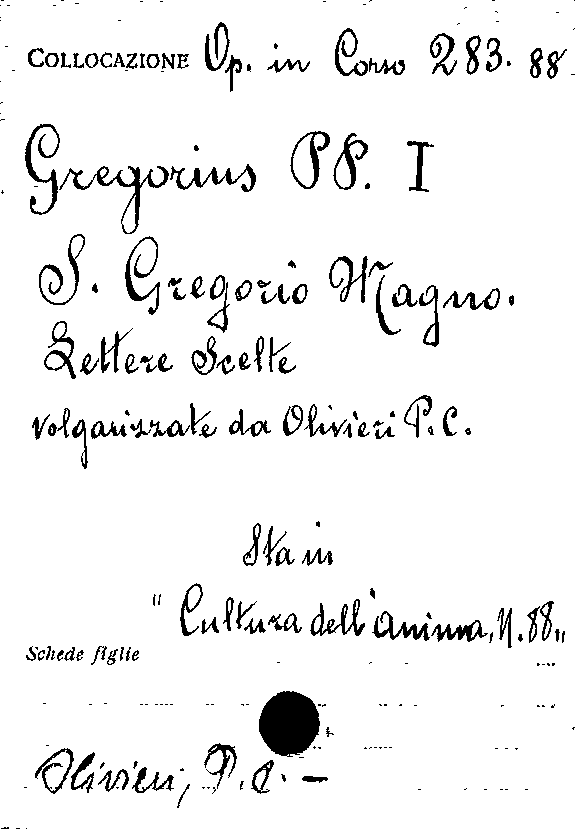 COLLOCAZIONE Op. in Corso 283. 88
Gregorius PP. I
S. Gregorio Magno.
Lettere Scelte
volgarizzate da Olivieri P. C.
Sta in
"Cultura dell'anima, N. 88"
Schede figlie
Olivieri, P. C. –